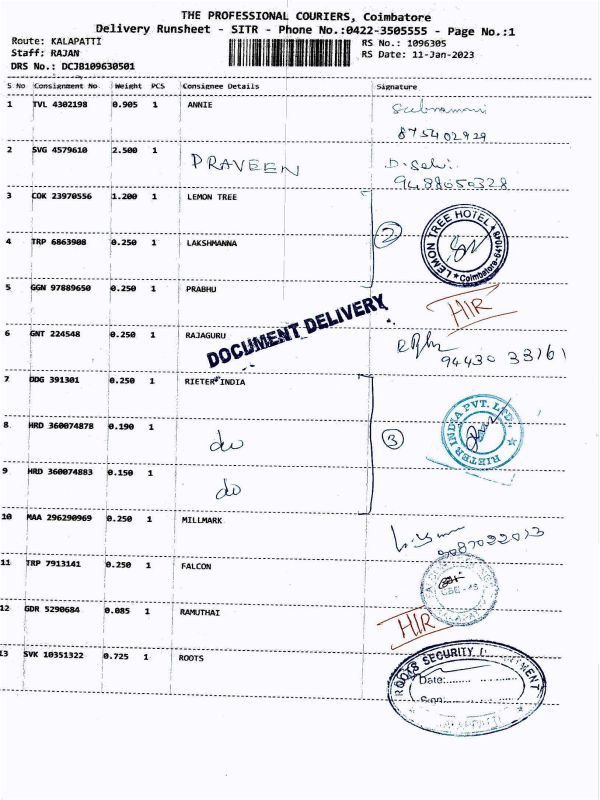 THE PROFESSIONAL COURIERS, Coimbatore
Delivery Runsheet - SITR - Phone No.:0422-3505555 - Page No.:1
Route: KALAPATTI
Staff: RAJAN
DRS No.: DCJB109630501
RS No.: 1096305
RS Date: 11-Jan-2023
S No Consignment No Weight PCS Consignee Details Signature
1 TVL 4302198 0.905 1 ANNIE
875402929
2 SVG 4579610 2.500 1 PRAVEEN D. Selvi
9488050328
3 COK 23970556 1.200 1 LEMON TREE
LEMON TREE HOTEL
Coimbatore
2
4 TRP 6863908 0.250 1 LAKSHMANNA
5 GGN 97889650 0.250 1 PRABHU HIR
DOCUMENT DELIVERY
6 GNT 224548 0.250 1 RAJAGURU
94430 33161
7 DDG 391301 0.250 1 RIETER INDIA
RIETER INDIA PVT. LTD.
8 HRD 360074878 0.190 1 do
3
9 HRD 360074883 0.150 1 do
10 MAA 296290969 0.250 1 MILLMARK
11 TRP 7913141 0.250 1 FALCON
12 GDR 5290684 0.085 1 RAMUTHAI HIR
13 SVK 10351322 0.725 1 ROOTS
ROOTS SECURITY
Date:
Sign: